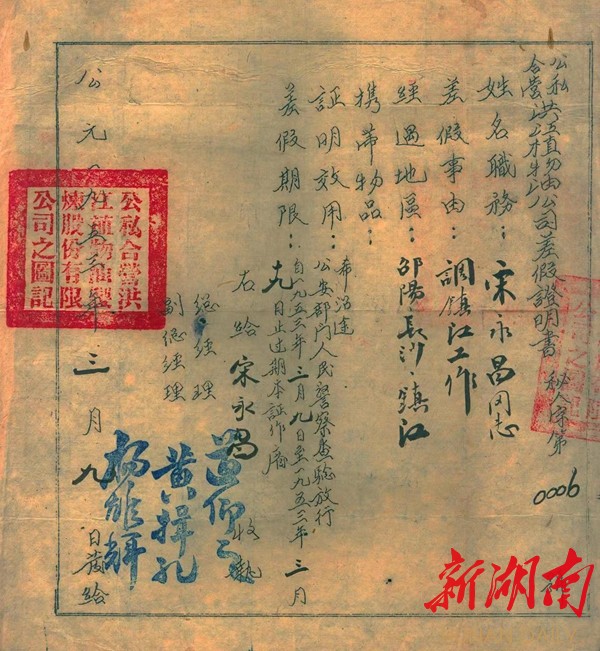 公私合营洪江植物油公司差假證明書 秘人字第0006
姓名職務：宋永昌同志
差假事由：調鎮江工作
經過地區：邵陽、長沙、鎮江
携帶物品：
証明效用：希沿途公安部门人民警察查驗放行
差假期限：自一九五三年三月九日至一九五三年三月
九日止过期本証作廢
右給 宋永昌 收執
总經理
副总經理
公元一九五三年三月九日發給
公私合營洪
江植物油製
煉股份有限
公司之圖記
新湖南